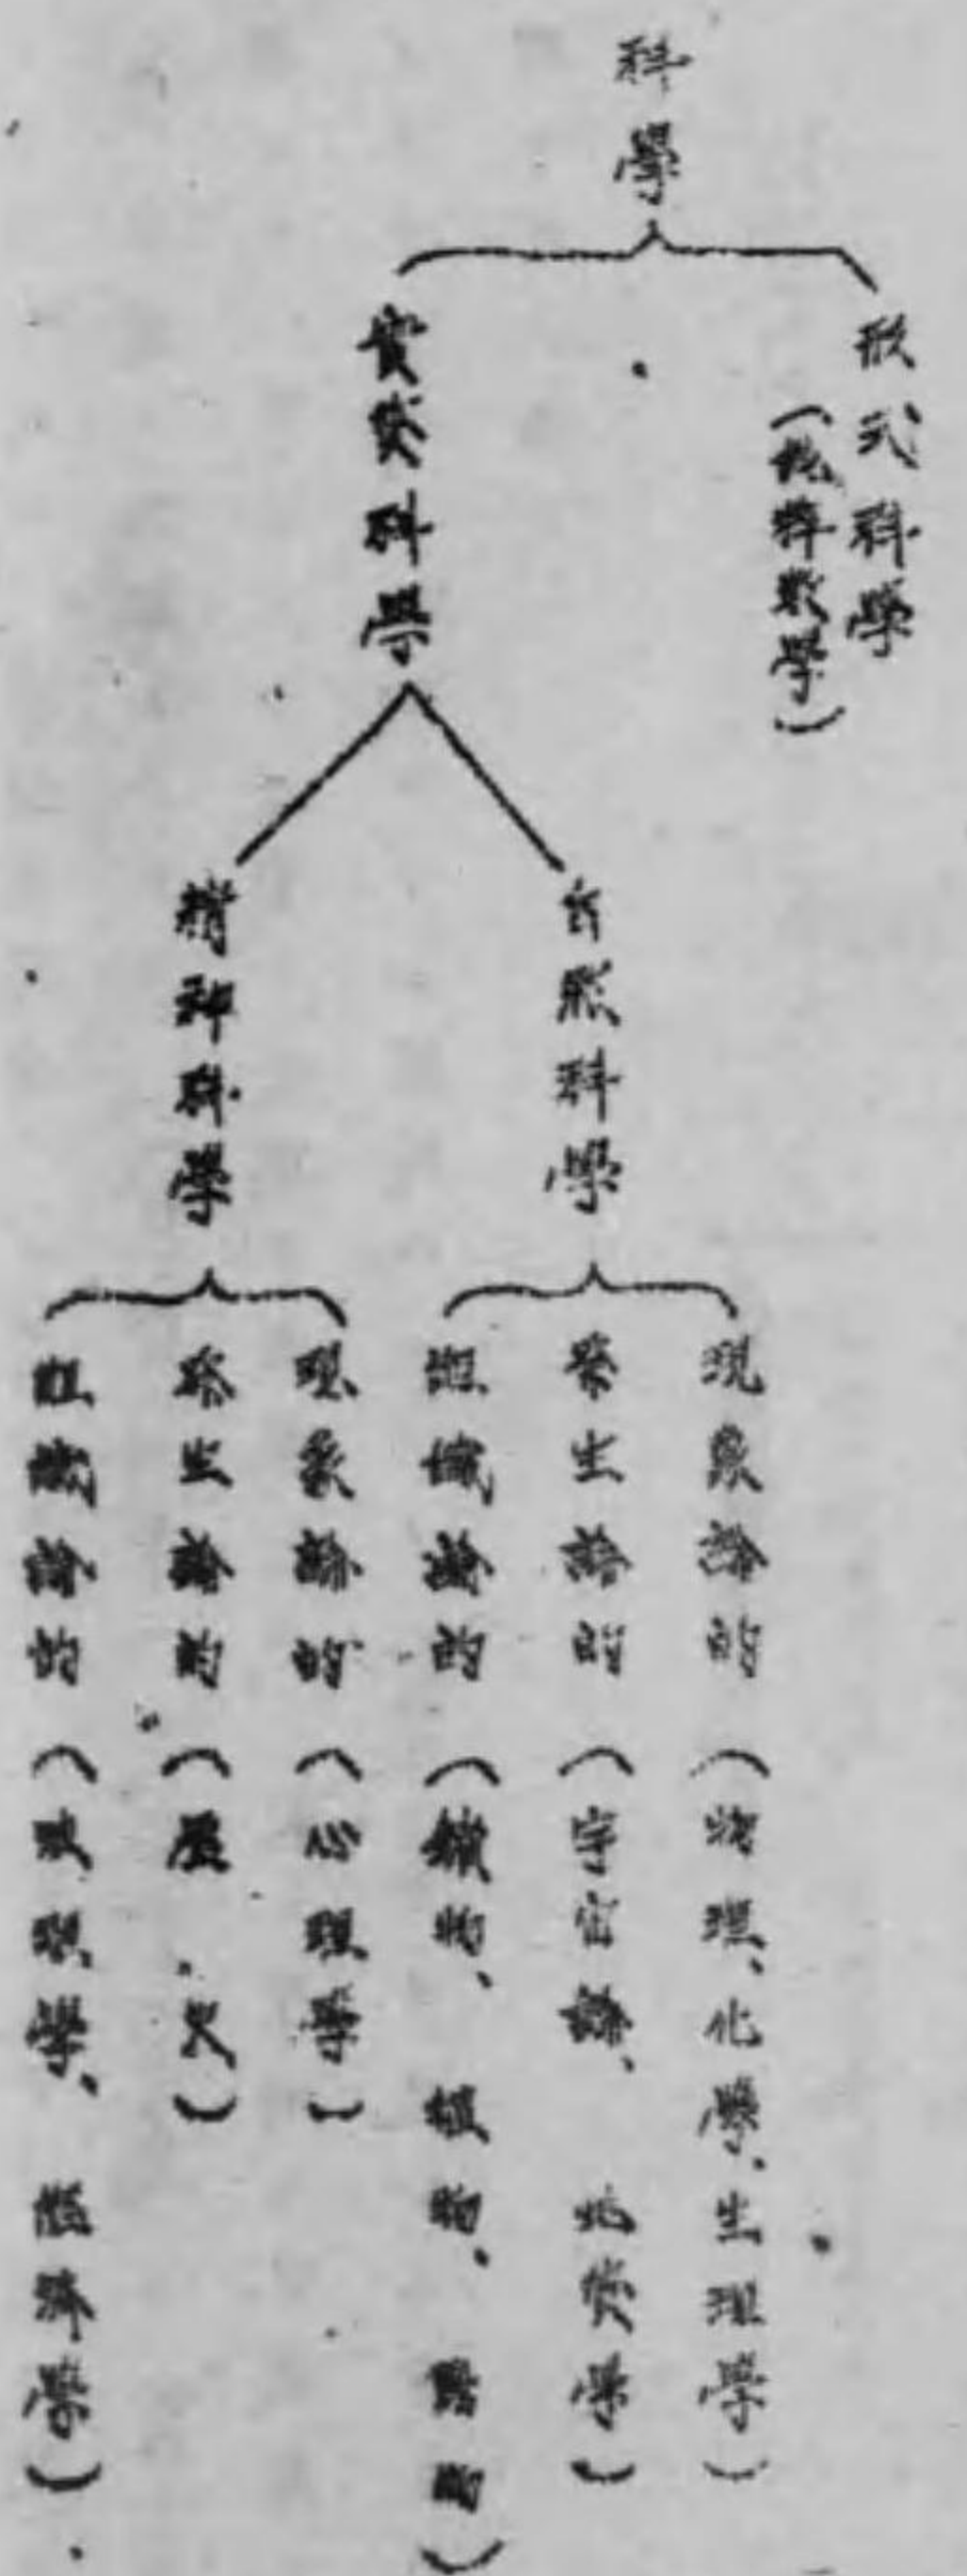 科學
形式科學
(純粹數學)
實質科學
自然科學
現象論的(物理、化學、生理學)
發生論的(宇宙論、地質學)
組織論的(鑛物、植物、動物)
精神科學
現象論的(心理學)
發生論的(歷史)
組織論的(政理學、經濟學).